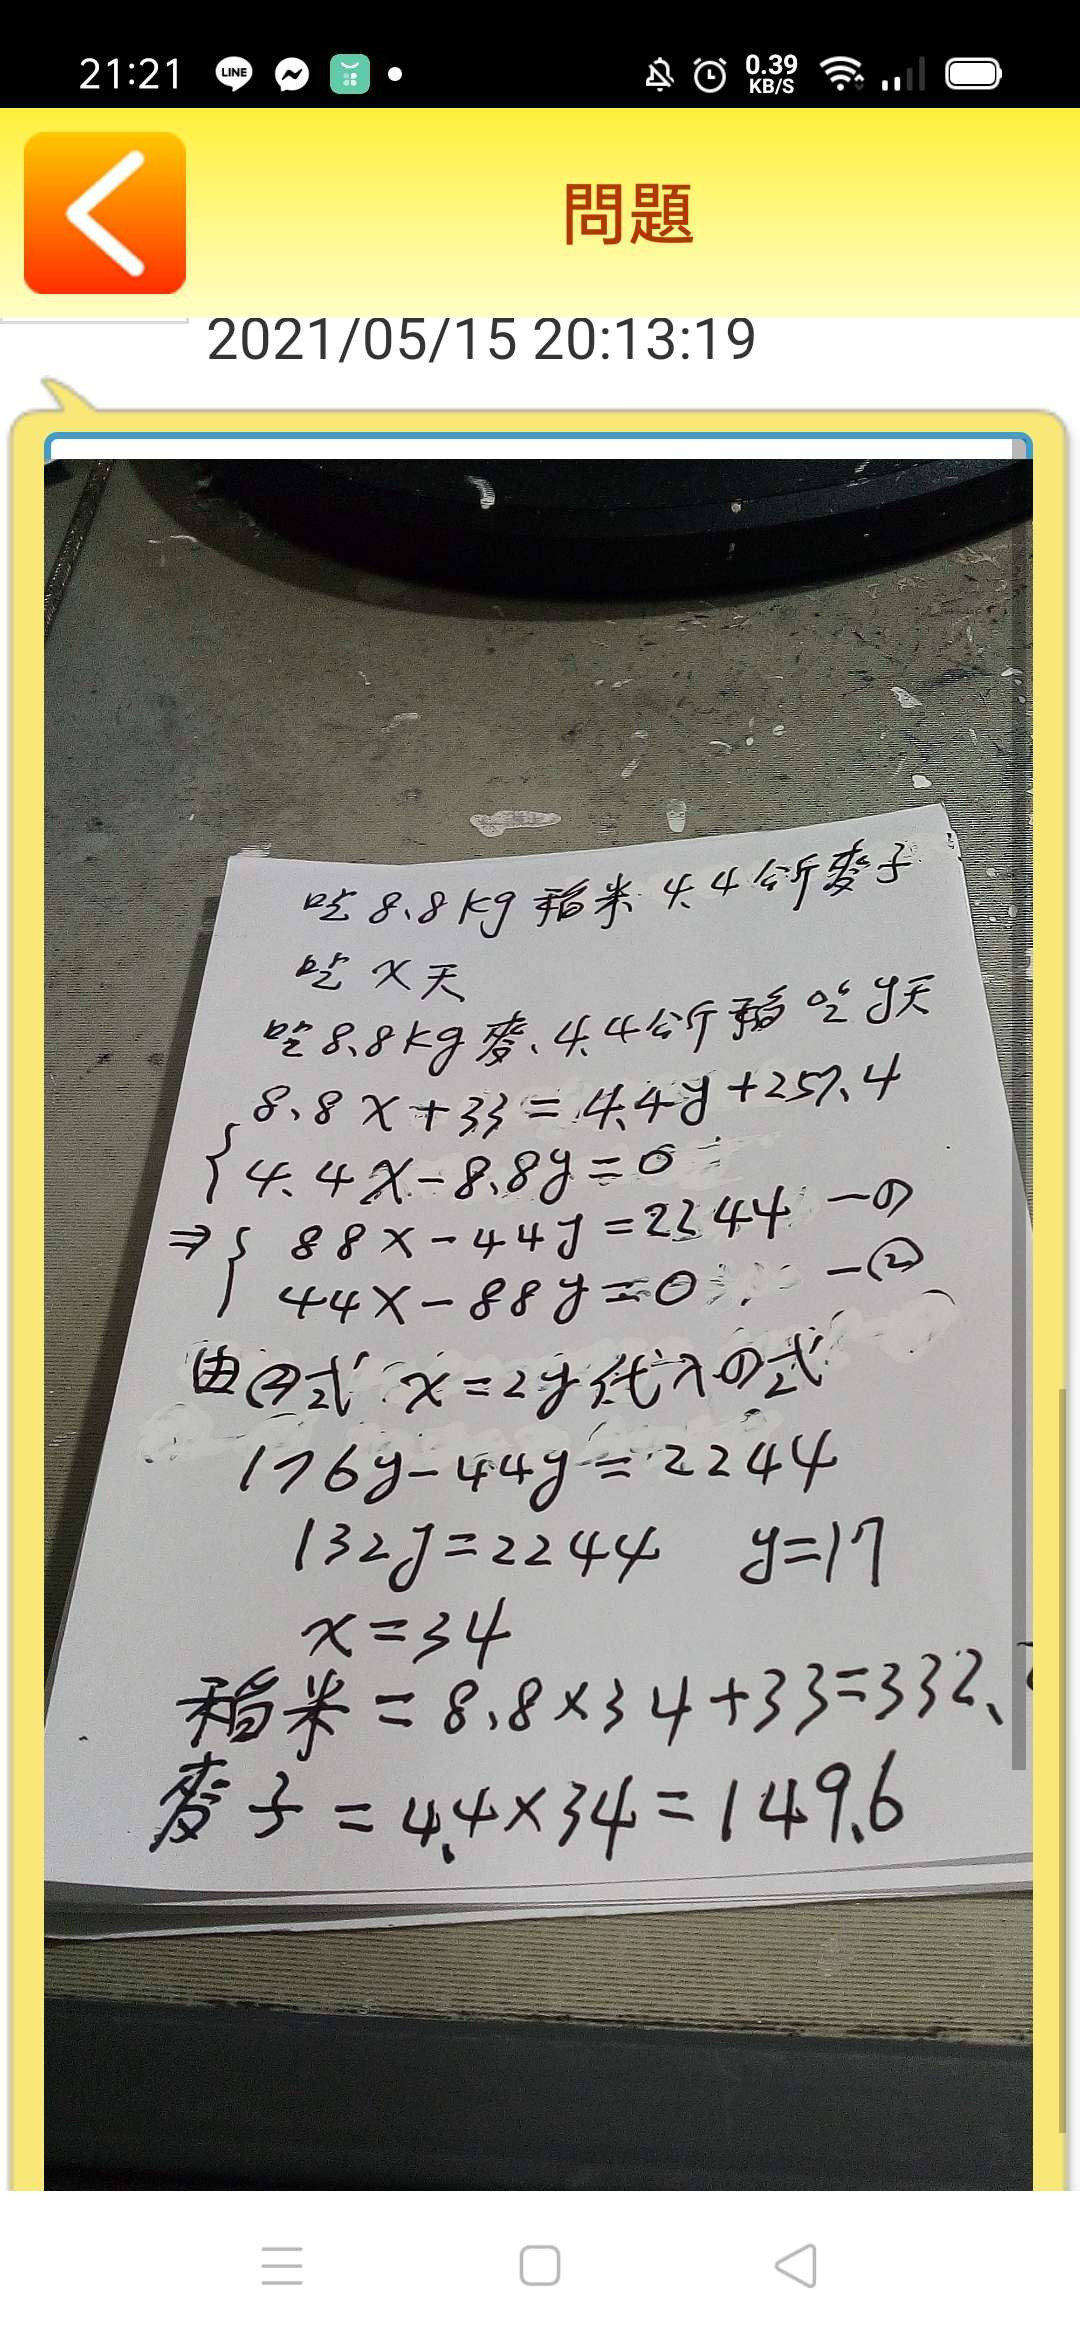 21:21 LINE 0.39 KB/S
問題
2021/05/15 20:13:19
吃8.8kg稻米4.4公斤麥子
吃x天
吃8.8kg麥、4.4公斤稻吃y天
8.8x+33=4.4y+257.4
4.4x-8.8y=0
⇒ 88x-44y=2244 —①
44x-88y=0 —②
由②式 x=2y代入①式
176y-44y=2244
132y=2244 y=17
x=34
稻米=8.8×34+33=332.
麥子=4.4×34=149.6